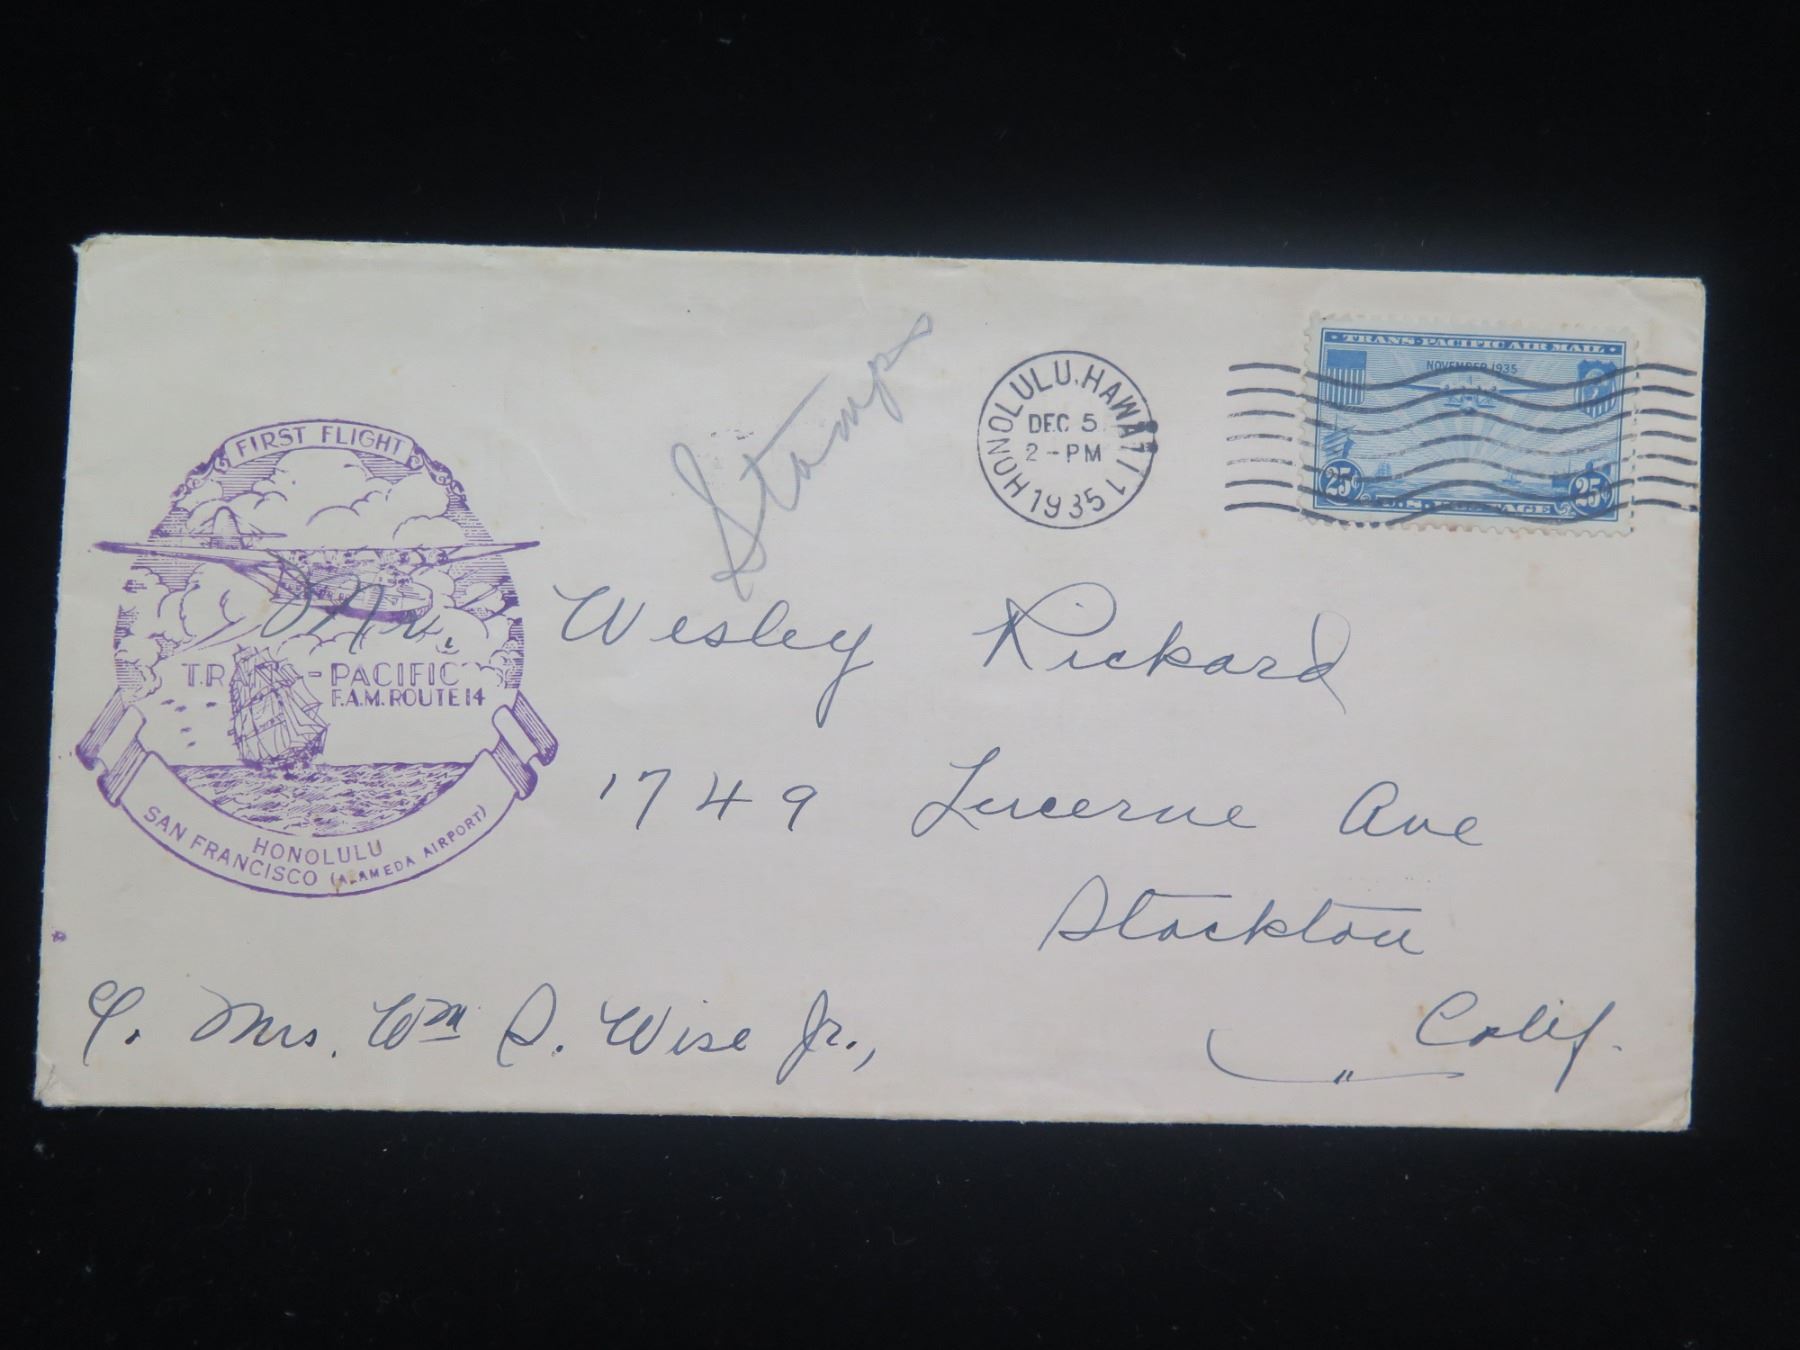 FIRST FLIGHT
TRANS-PACIFIC
F.A.M. ROUTE 14
HONOLULU
SAN FRANCISCO (ALAMEDA AIRPORT)
Stamps
HONOLULU, HAWAII
DEC 5
2-PM
1935
TRANS-PACIFIC AIR MAIL
NOVEMBER 1935
25¢ U.S. POSTAGE 25¢
Mr. Wesley Rickard
1749 Lucerne Ave
Stockton
Calif.
℅. Mrs. Wm S. Wise Jr.,